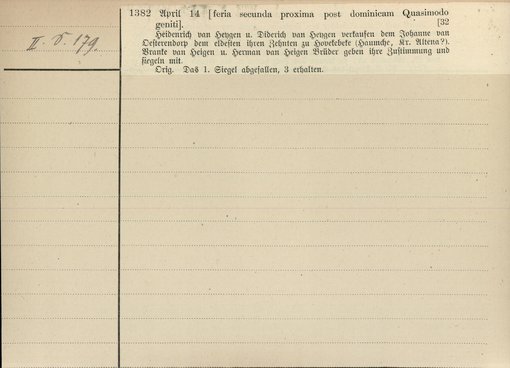 II. d. 179.
1382 April 14 [feria secunda proxima post dominicam Quasimodo
geniti]. [32
Heidenrich van Heygen u. Diderich van Heygen verkaufen dem Johanne van
Oesterendorp dem eldesten ihren Zehnten zu Hovekebeke (Haumche, Kr. Altena?).
Branke van Heigen u. Herman van Heigen Brüder geben ihre Zustimmung und
siegeln mit.
Orig. Das 1. Siegel abgefallen, 3 erhalten.